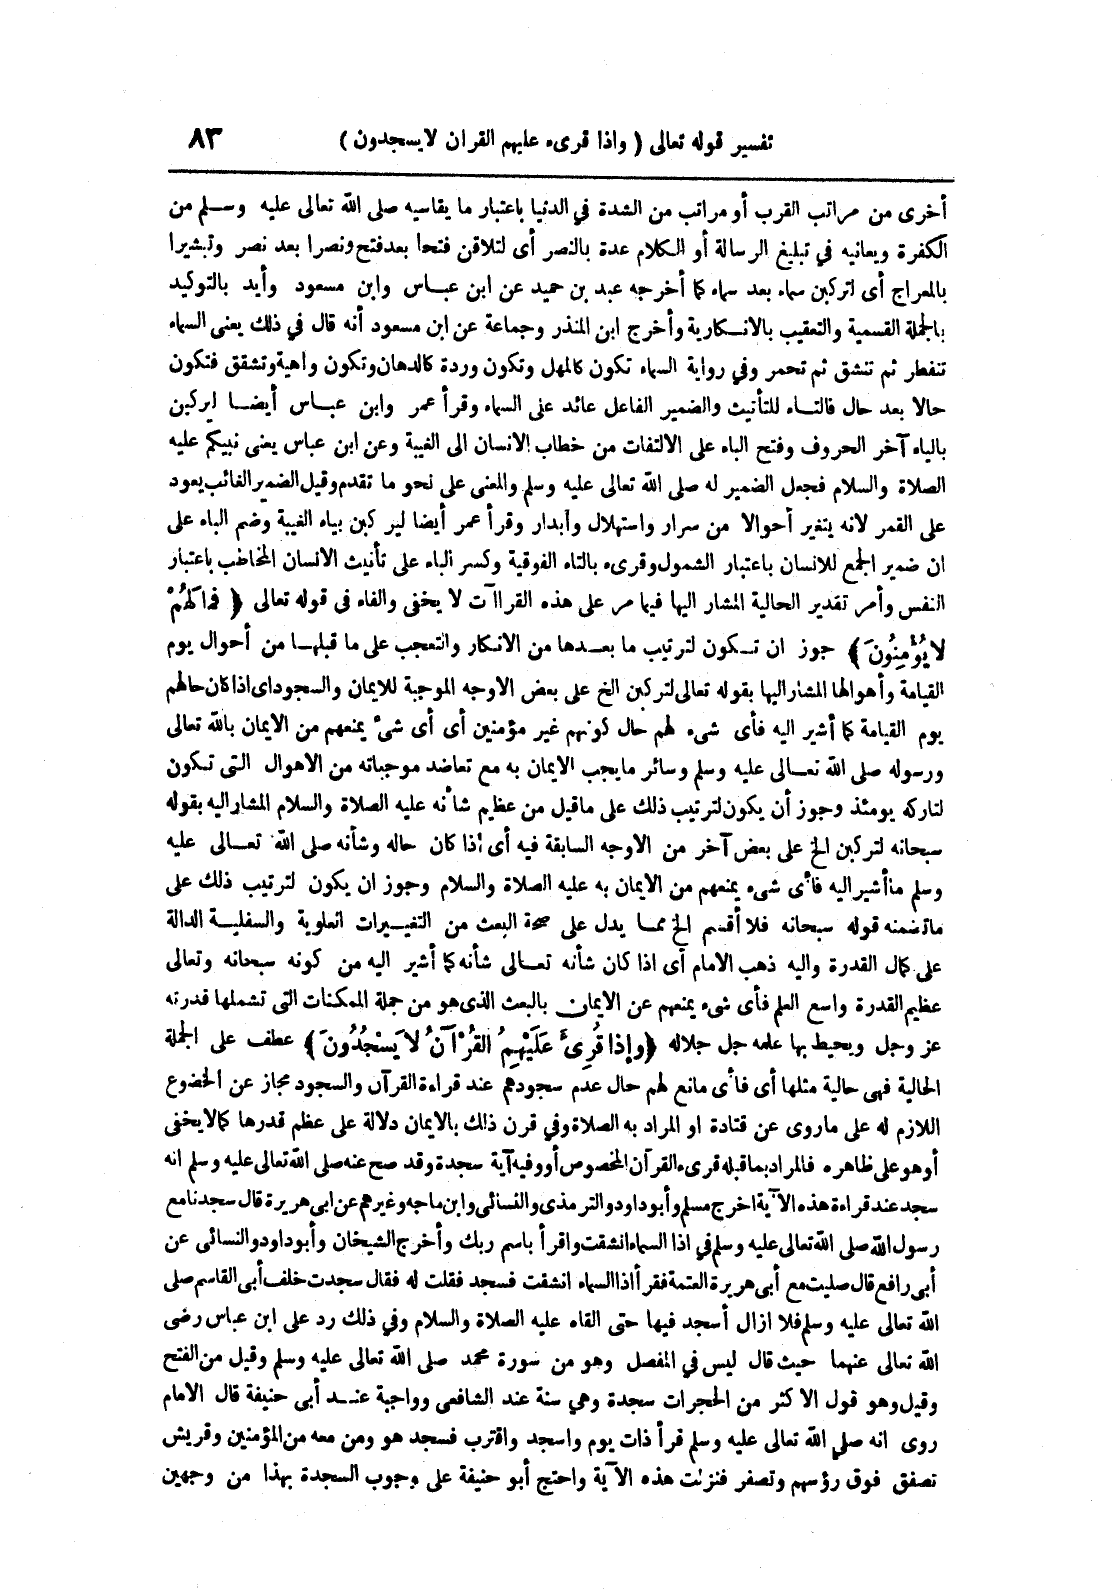 تفسير قوله تعالى ( واذا قرىء عليهم القران لايسجدون ) ٨٣
أخرى من مراتب القرب أو مراتب من الشدة في الدنيا باعتبار ما يقاسيه صلى الله تعالى عليه وسلم من
الكفرة ويعانيه في تبليغ الرسالة أو الكلام عدة بالنصر أى لتلاقن فتحا بعدفتح ونصرا بعد نصر وتبشيرا
بالمعراج أى لتركبن سماء بعد سماء كما أخرجه عبد بن حميد عن ابن عباس وابن مسعود وأيد بالتوكيد
بالجملة القسمية والتعقيب بالانكارية وأخرج ابن المنذر وجماعة عن ابن مسعود أنه قال في ذلك يعنى السماء
تنفطر ثم تنشق ثم تحمر وفي رواية السماء تكون كالمهل وتكون وردة كالدهان وتكون واهية وتشقق فتكون
حالا بعد حال فالتاء للتأنيث والضمير الفاعل عائد على السماء وقرأ عمر وابن عباس أيضا ليركبن
بالياء آخر الحروف وفتح الباء على الالتفات من خطاب الانسان الى الغيبة وعن ابن عباس يعنى نبيكم عليه
الصلاة والسلام فجعل الضمير له صلى الله تعالى عليه وسلم والمعنى على نحو ما تقدم وقيل الضمير الغائب يعود
على القمر لانه يتغير أحوالا من سرار واستهلال وأبدار وقرأ عمر أيضا لير كبن بياء الغيبة وضم الباء على
ان ضمير الجمع للانسان باعتبار الشمول وقرىء بالتاء الفوقية وكسر الباء على تأنيث الانسان المخاطب باعتبار
النفس وأمر تقدير الحالية المشار اليها فيما مر على هذه القراآت لا يخفى والفاء فى قوله تعالى ﴿ فَمَا لَهُمْ
لَا يُؤْمِنُونَ ﴾ جوز ان تكون لترتيب ما بعدها من الانكار والتعجب على ما قبلها من أحوال يوم
القيامة وأهوالها المشار اليها بقوله تعالى لتركبن الخ على بعض الاوجه الموجبة للايمان والسجود اى اذا كان حالهم
يوم القيامة كما أشير اليه فأى شىء لهم حال كونهم غير مؤمنين أى أى شىء يمنعهم من الايمان بالله تعالى
ورسوله صلى الله تعالى عليه وسلم وسائر مايجب الايمان به مع تعاضد موجباته من الاهوال التى تكون
لتاركه يومئذ وجوز أن يكون لترتيب ذلك على ماقيل من عظيم شأنه عليه الصلاة والسلام المشار اليه بقوله
سبحانه لتركبن الخ على بعض آخر من الاوجه السابقة فيه أى اذا كان حاله وشأنه صلى الله تعالى عليه
وسلم ماأشير اليه فأى شىء يمنعهم من الايمان به عليه الصلاة والسلام وجوز ان يكون لترتيب ذلك على
ماتضمنه قوله سبحانه فلا أقسم الخ مما يدل على صحة البعث من التغييرات العلوية والسفلية الدالة
على كمال القدرة واليه ذهب الامام أى اذا كان شأنه تعالى شأنه كما أشير اليه من كونه سبحانه وتعالى
عظيم القدرة واسع العلم فأى شىء يمنعهم عن الايمان بالبعث الذى هو من جملة الممكنات التى تشملها قدرته
عز وجل ويحيط بها علمه جل جلاله ﴿ وإِذَا قُرِئَ عَلَيْهِمُ القُرْآنُ لَا يَسْجُدُونَ ﴾ عطف على الجملة
الحالية فهى حالية مثلها أى فأى مانع لهم حال عدم سجودهم عند قراءة القرآن والسجود مجاز عن الخضوع
اللازم له على ماروى عن قتادة او المراد به الصلاة وفي قرن ذلك بالايمان دلالة على عظم قدرها كمالايخفى
أوهو على ظاهره فالمراد بماقبله قرىء القرآن المخصوص أووفيه آية سجدة وقد صح عنه صلى الله تعالى عليه وسلم انه
سجد عند قراءة هذه الآية اخرج مسلم وأبو داود والترمذى والنسائى وابن ماجه وغيرهم عن ابى هريرة قال سجدنا مع
رسول الله صلى الله تعالى عليه وسلم في اذا السماء انشقت واقرأ باسم ربك وأخرج الشيخان وأبو داود والنسائى عن
أبى رافع قال صليت مع أبى هريرة العتمة فقرأ اذا السماء انشقت فسجد فقلت له فقال سجدت خلف أبى القاسم صلى
الله تعالى عليه وسلم فلا ازال أسجد فيها حتى القاه عليه الصلاة والسلام وفي ذلك رد على ابن عباس رضى
الله تعالى عنهما حيث قال ليس في المفصل وهو من سورة محمد صلى الله تعالى عليه وسلم وقيل من الفتح
وقيل وهو قول الا كثر من الحجرات سجدة وهي سنة عند الشافعى وواجبة عند أبى حنيفة قال الامام
روى انه صلى الله تعالى عليه وسلم قرأ ذات يوم واسجد واقترب فسجد هو ومن معه من المؤمنين وقريش
تصفق فوق رؤسهم وتصفر فنزلت هذه الآية واحتج أبو حنيفة على وجوب السجدة بهذا من وجهين